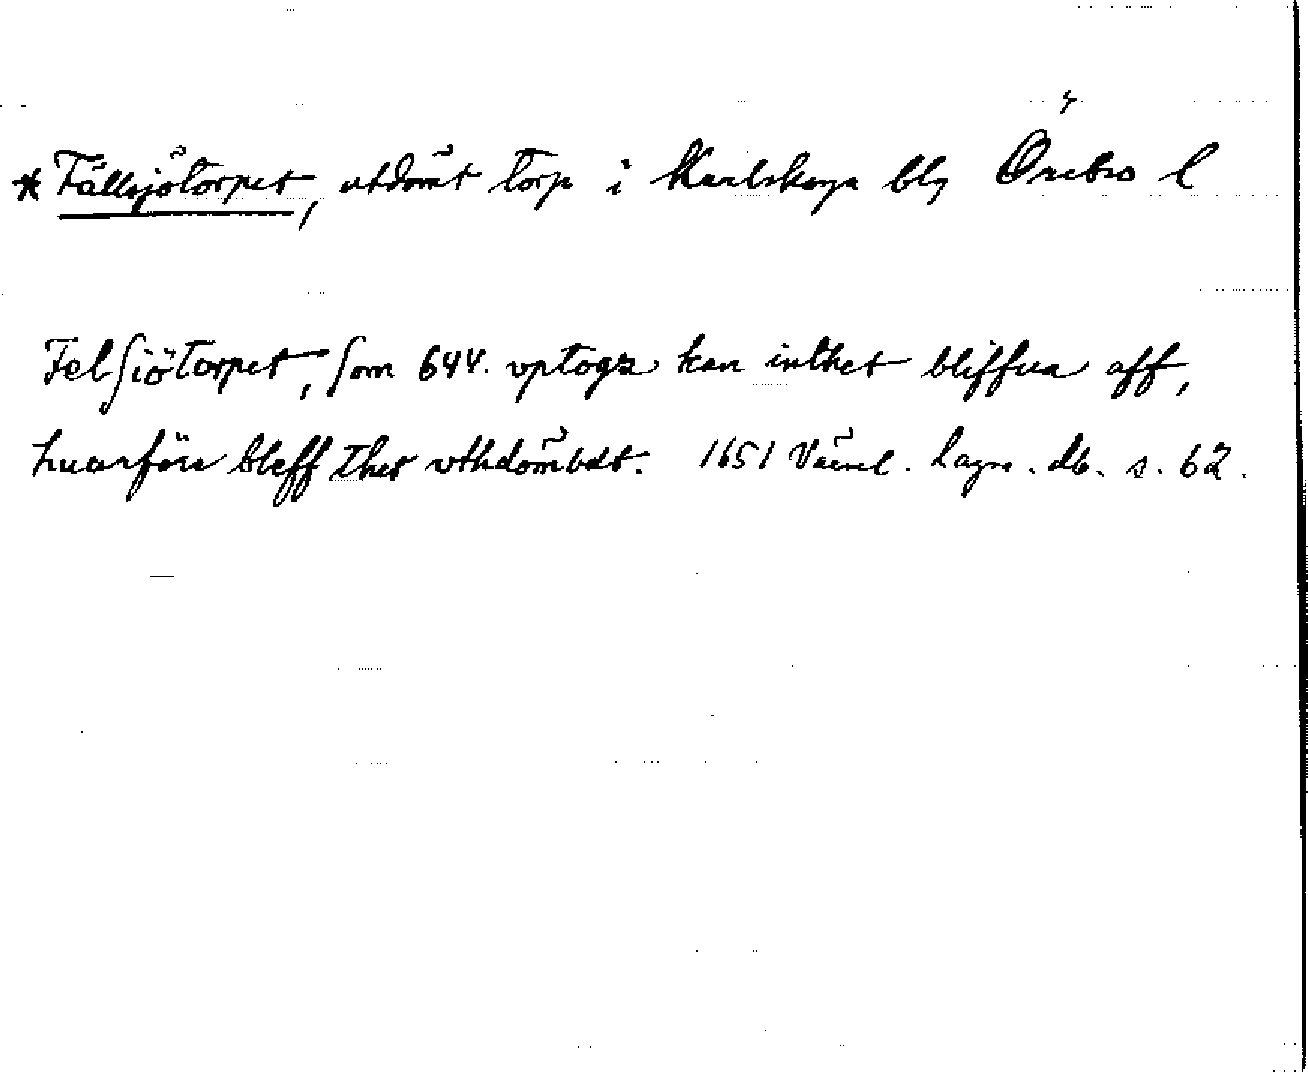 * Fällsjötorpet, utdömt torp i Karlskoga blg Örebro l
Felsjötorpet, som 644. vptogz kan inthet bliffua aff,
huarföre bleff thet vthdömbdt. 1651 Värml. lagm. db. s. 62.